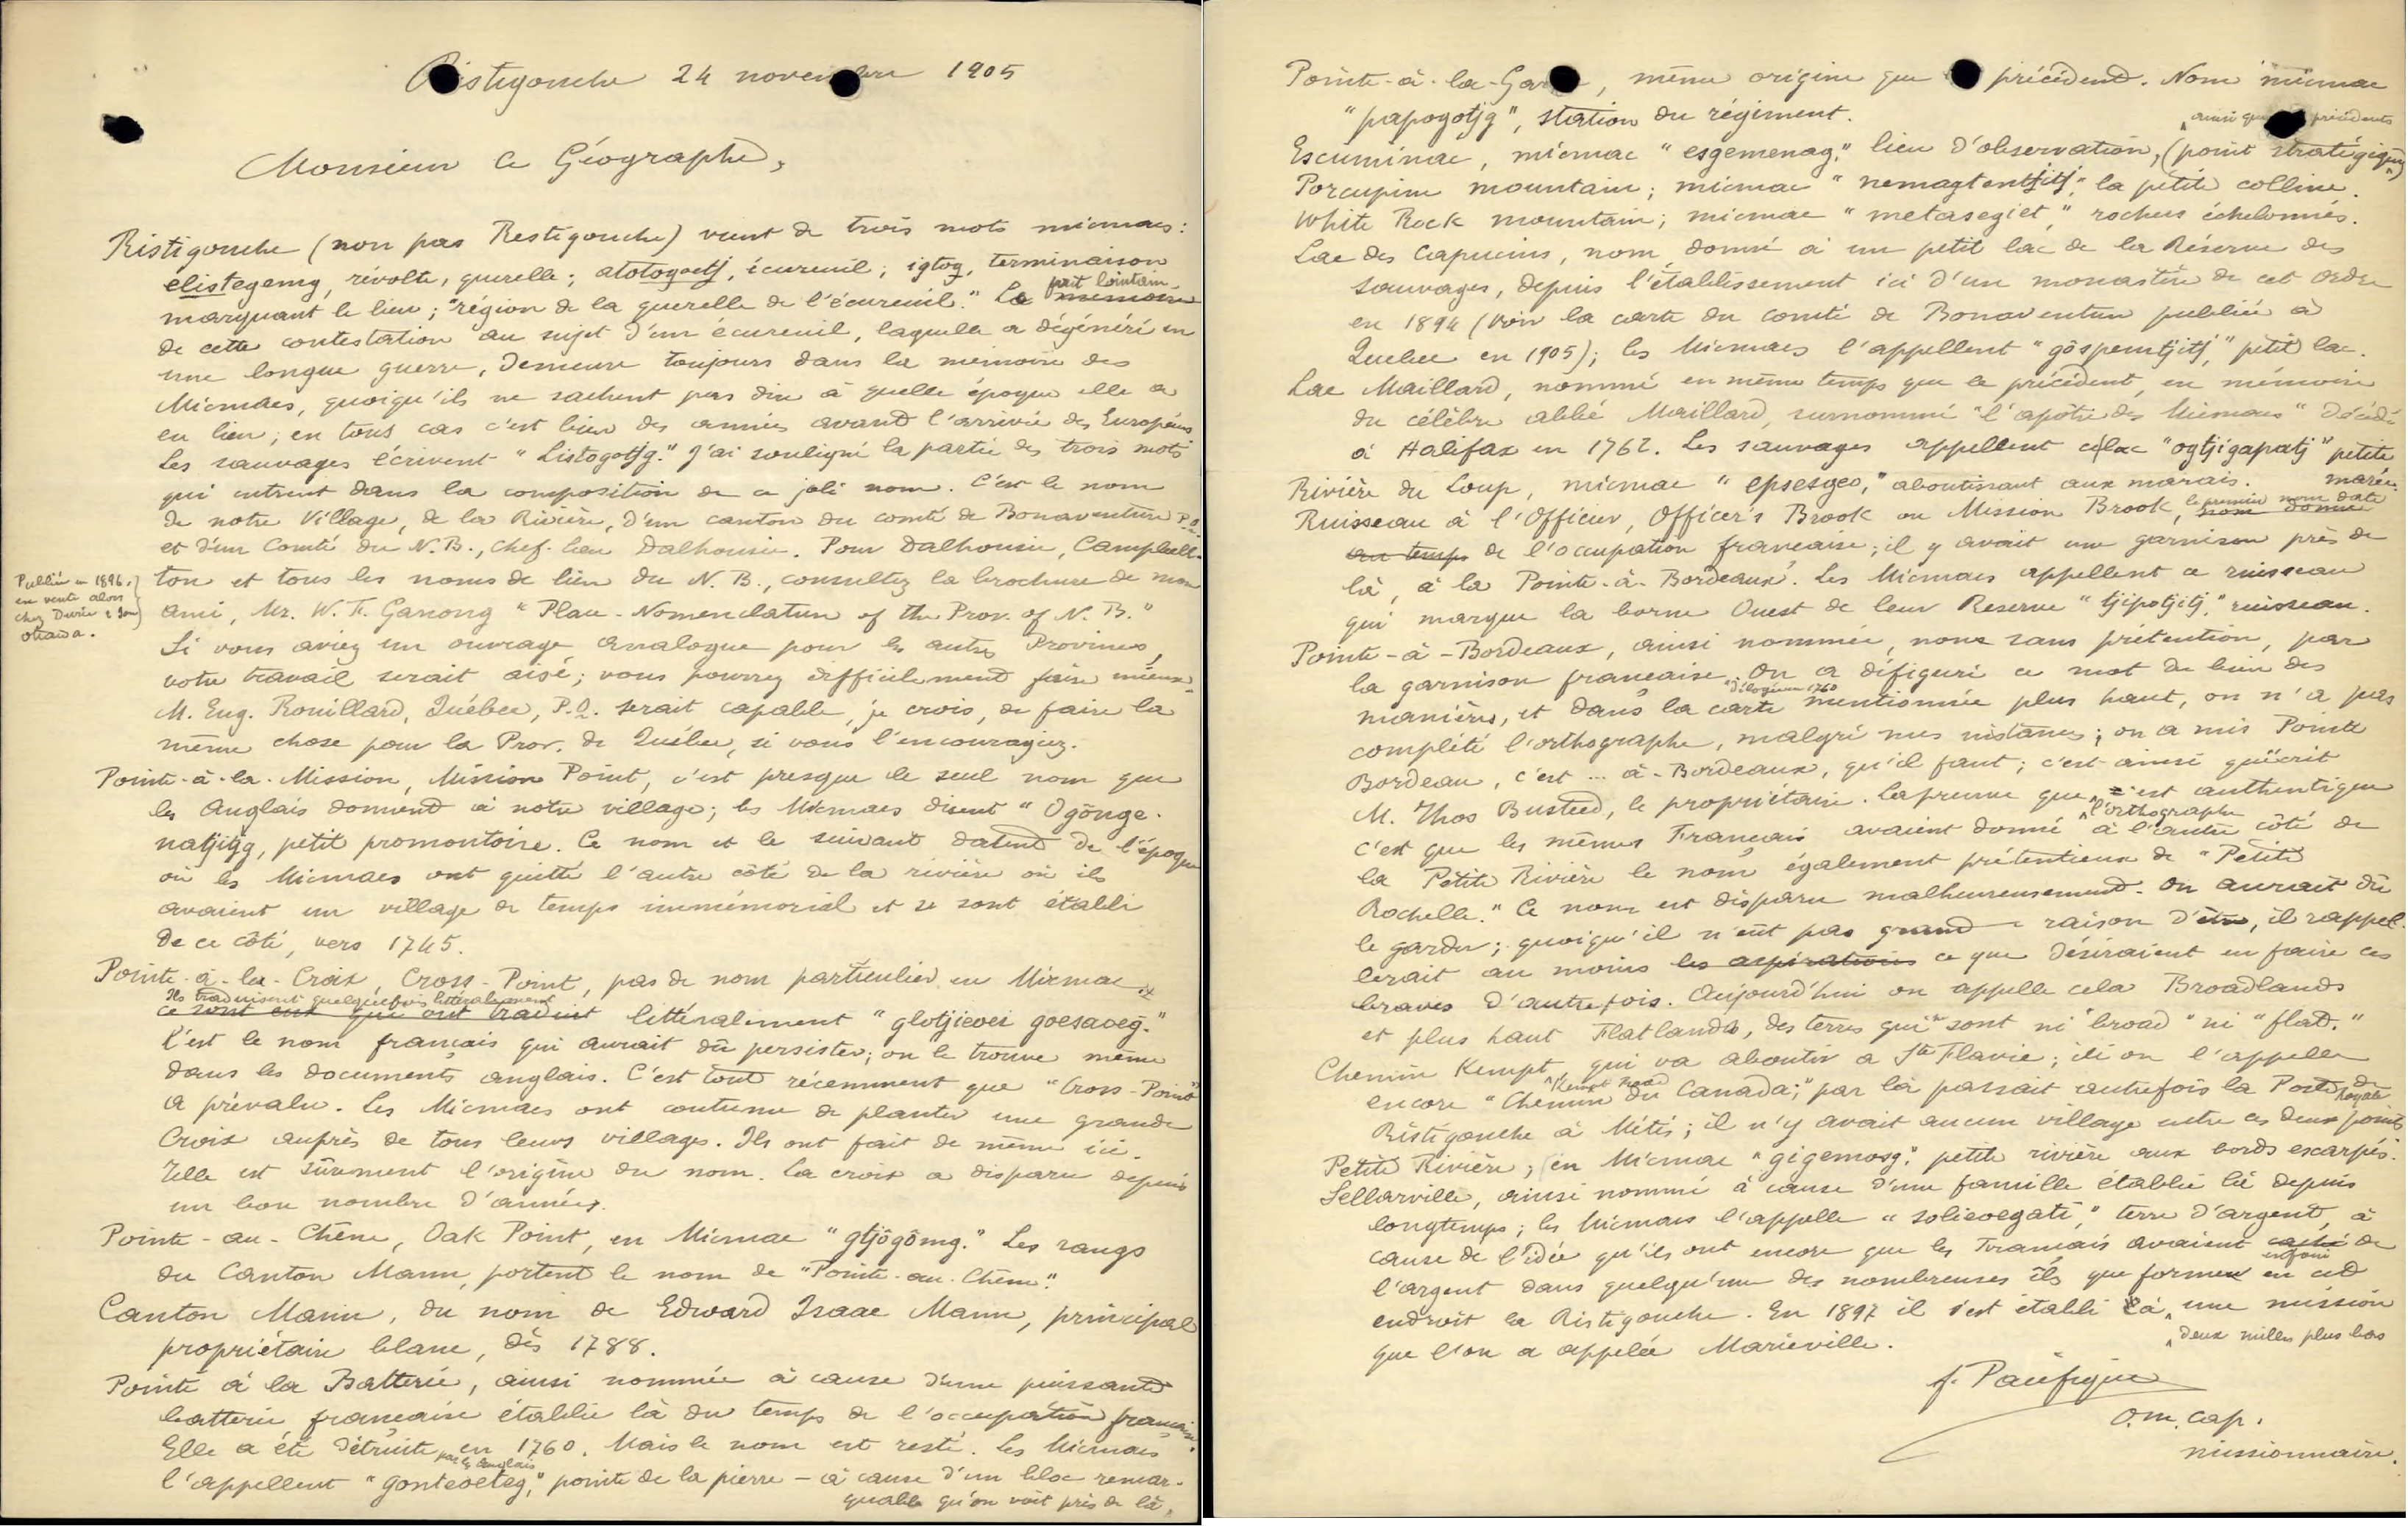 Ristigouche 24 novembre 1905
Monsieur le Géographe,
Ristigouche (non pas Restigouche) vient de trois mots micmacs:
elistegemg, révolte, querelle; atotogoetj, écureuil; igtog, terminaison
marquant le lieu; "région de la querelle de l'écureuil." Le fait lointain
de cette contestation au sujet d'un écureuil, laquelle a dégénéré en
une longue guerre, demeure toujours dans la mémoire des
Micmacs, quoiqu'ils ne sachent pas dire à quelle époque elle a
eu lieu; en tous cas c'est bien des années avant l'arrivée des Européens
Les sauvages écrivent "Listogotjg." J'ai souligné la partie des trois mots
qui entrent dans la composition de ce joli nom. C'est le nom
de notre Village, de la Rivière, d'un canton du comté de Bonaventure P.Q.
et d'un Comté du N.B., chef-lieu Dalhousie. Pour Dalhousie, Campbell-
ton et tous les noms de lieu du N.B., consultez la brochure de mon
Publiée en 1896,
en vente alors
chez Durie & Son
Ottawa.
ami, Mr. W. F. Ganong "Place-Nomenclature of the Prov. of N.B."
Si vous aviez un ouvrage analogue pour les autres Provinces,
votre travail serait aisé; vous pourrez difficilement faire mieux.
M. Eug. Rouillard, Québec, P.Q. serait capable, je crois, de faire la
même chose pour la Prov. de Québec, si vous l'encouragiez.
Pointe-à-la-Mission, Mission Point, c'est presque le seul nom que
les Anglais donnent à notre village; les Micmacs disent "Ogônge-
natjitjg, petit promontoire. Ce nom et le suivant datent de l'époque
où les Micmacs ont quitté l'autre côté de la rivière où ils
avaient un village de temps immémorial et se sont établi
de ce côté, vers 1745.
Pointe-à-la-Croix, Cross-Point, pas de nom particulier en Micmac.
Ils traduisent quelquefois littéralement
ce sont eux qui ont traduit littéralement "glotjieoei goesaoeg."
C'est le nom français qui aurait dû persister; on le trouve même
dans les documents anglais. C'est tout récemment que "Cross-Point"
a prévalu. Les Micmacs ont coutume de planter une grande
Croix auprès de tous leurs villages. Ils ont fait de même ici.
Telle est sûrement l'origine du nom. La croix a disparu depuis
un bon nombre d'années.
Pointe-au-Chêne, Oak Point, en Micmac "gtjôgômg." Les rangs
du Canton Mann, portent le nom de "Pointe-au-Chêne".
Canton Mann, du nom de Edward Isaac Mann, principal
propriétaire blanc, dès 1788.
Pointe à la Batterie, ainsi nommée à cause d'une puissante
batterie française établie là du temps de l'occupation française.
Elle a été détruite par les Anglais en 1760. Mais le nom est resté. Les Micmacs
l'appellent "gonteoeteg," pointe de la pierre - à cause d'un bloc remar-
quable qu'on voit près de là.
Pointe-à-la-Garde, même origine que le précédent. Nom micmac
"papogotjg", station du régiment.
ainsi que précédents
Escuminac, micmac "esgemenag," lieu d'observation, (point stratégique)
Porcupine mountain; micmac "nemagtentjitj," la petite colline.
White Rock mountain; micmac "metasegiet," rochers échelonnés.
Lac des Capucins, nom donné à un petit lac de la Réserve des
sauvages, depuis l'établissement ici d'un monastère de cet Ordre
en 1894 (voir la carte du comté de Bonaventure publiée à
Québec en 1905); les Micmacs l'appellent "gôspemtjitj," petit lac.
Lac Maillard, nommé en même temps que le précédent, en mémoire
du célèbre abbé Maillard, surnommé "l'apôtre des Micmacs" décédé
à Halifax en 1762. Les sauvages appellent ce lac "ogtjigapatj" petite
marée.
Rivière du Loup, micmac "epsesgeo," aboutissant aux marais.
Ruisseau à l'Officier, Officer's Brook ou Mission Brook, le premier nom date
nom donné
au temps de l'occupation française; il y avait une garnison près de
là, à la Pointe-à-Bordeaux. Les Micmacs appellent ce ruisseau
qui marque la borne Ouest de leur Reserve "tjipotjitj," ruisseau.
Pointe-à-Bordeaux, ainsi nommée, non sans prétention, par
la garnison française délogée en 1760. On a défiguré ce mot de bien des
manières, et dans la carte mentionnée plus haut, on n'a pas
complété l'orthographe, malgré mes instances; on a mis Pointe
Bordeau, c'est ... à-Bordeaux, qu'il faut; c'est ainsi qu'écrit
M. Thos Busteed, le propriétaire. La preuve que l'orthographe est authentique
c'est que les mêmes Français avaient donné à l'autre côté de
la Petite Rivière le nom également prétentieux de "Petite
Rochelle." Ce nom est disparu malheureusement. On aurait dû
le garder; quoiqu'il n'eût pas grand raison d'être, il rappel-
lerait au moins les aspirations ce que désiraient en faire ces
braves d'autrefois. Aujourd'hui on appelle cela Broadlands
et plus haut Flatlands, des terres qui ne sont ni "broad" ni "flat."
Chemin Kempt, Kempt Road qui va aboutir a Ste Flavie; ici on l'appelle
encore "Chemin du Canada;" par là passait autrefois la Poste Royale de
Ristigouche à Métis; il n'y avait aucun village entre ces deux points
Petite Rivière, en Micmac "gigemosg." petite rivière aux bords escarpés.
Sellarville, ainsi nommé à cause d'une famille établie là depuis
longtemps; les Micmacs l'appelle "solieoegati," terre d'argent, à
cause de l'idée qu'ils ont encore que les Français avaient caché enfoui de
l'argent dans quelqu'une des nombreuses îles que forment en cet
endroit la Ristigouche. En 1897 il s'est établi là, une mission
deux milles plus bas
que l'on a appelée Marieville.
f. Pacifique
O.m. Cap.
missionnaire.